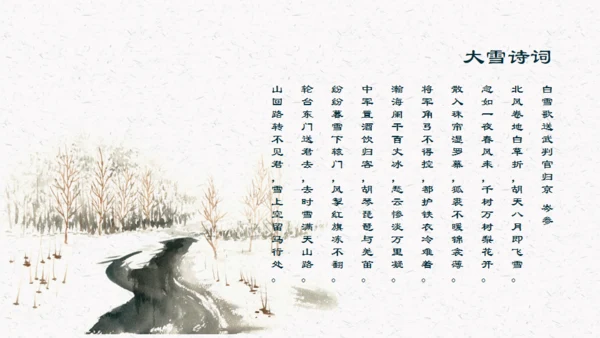 大雪诗词
白雪歌送武判官归京 岑参
北风卷地白草折，胡天八月即飞雪。
忽如一夜春风来，千树万树梨花开。
散入珠帘湿罗幕，狐裘不暖锦衾薄。
将军角弓不得控，都护铁衣冷难着。
瀚海阑干百丈冰，愁云惨淡万里凝。
中军置酒饮归客，胡琴琵琶与羌笛。
纷纷暮雪下辕门，风掣红旗冻不翻。
轮台东门送君去，去时雪满天山路。
山回路转不见君，雪上空留马行处。